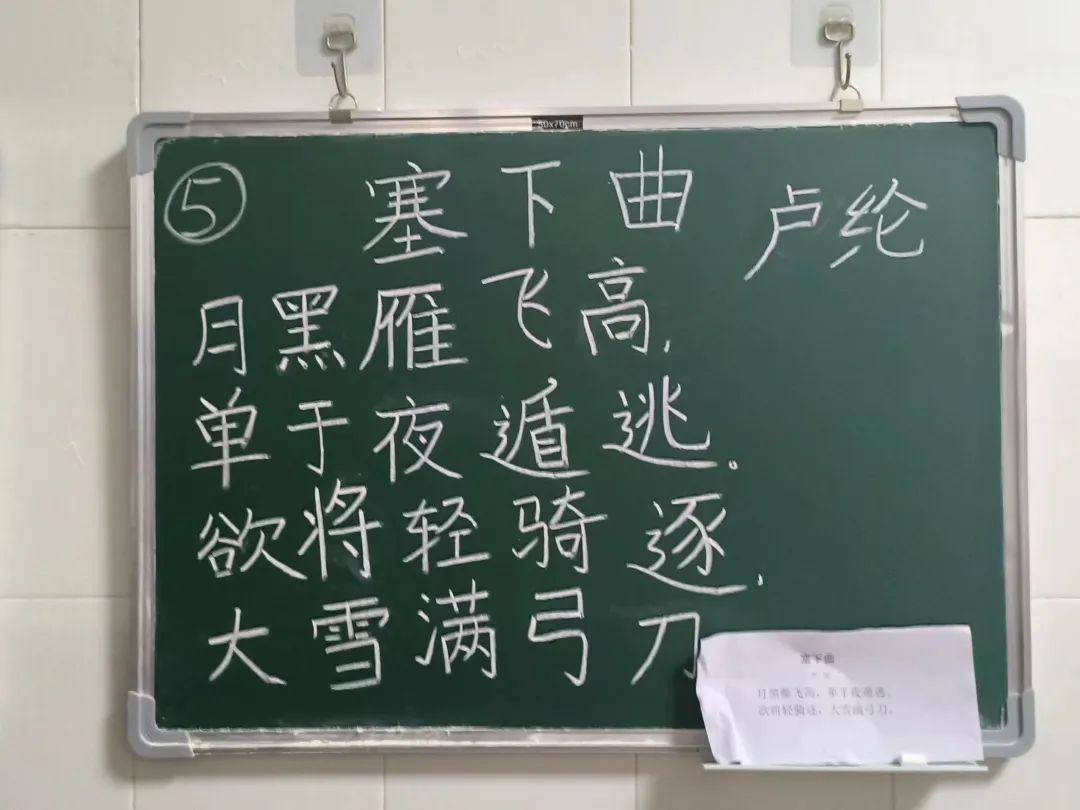 50x70cm
⑤ 塞下曲 卢纶
月黑雁飞高,
单于夜遁逃。
欲将轻骑逐,
大雪满弓刀
塞下曲
月黑雁飞高，单于夜遁逃。
欲将轻骑逐，大雪满弓刀。